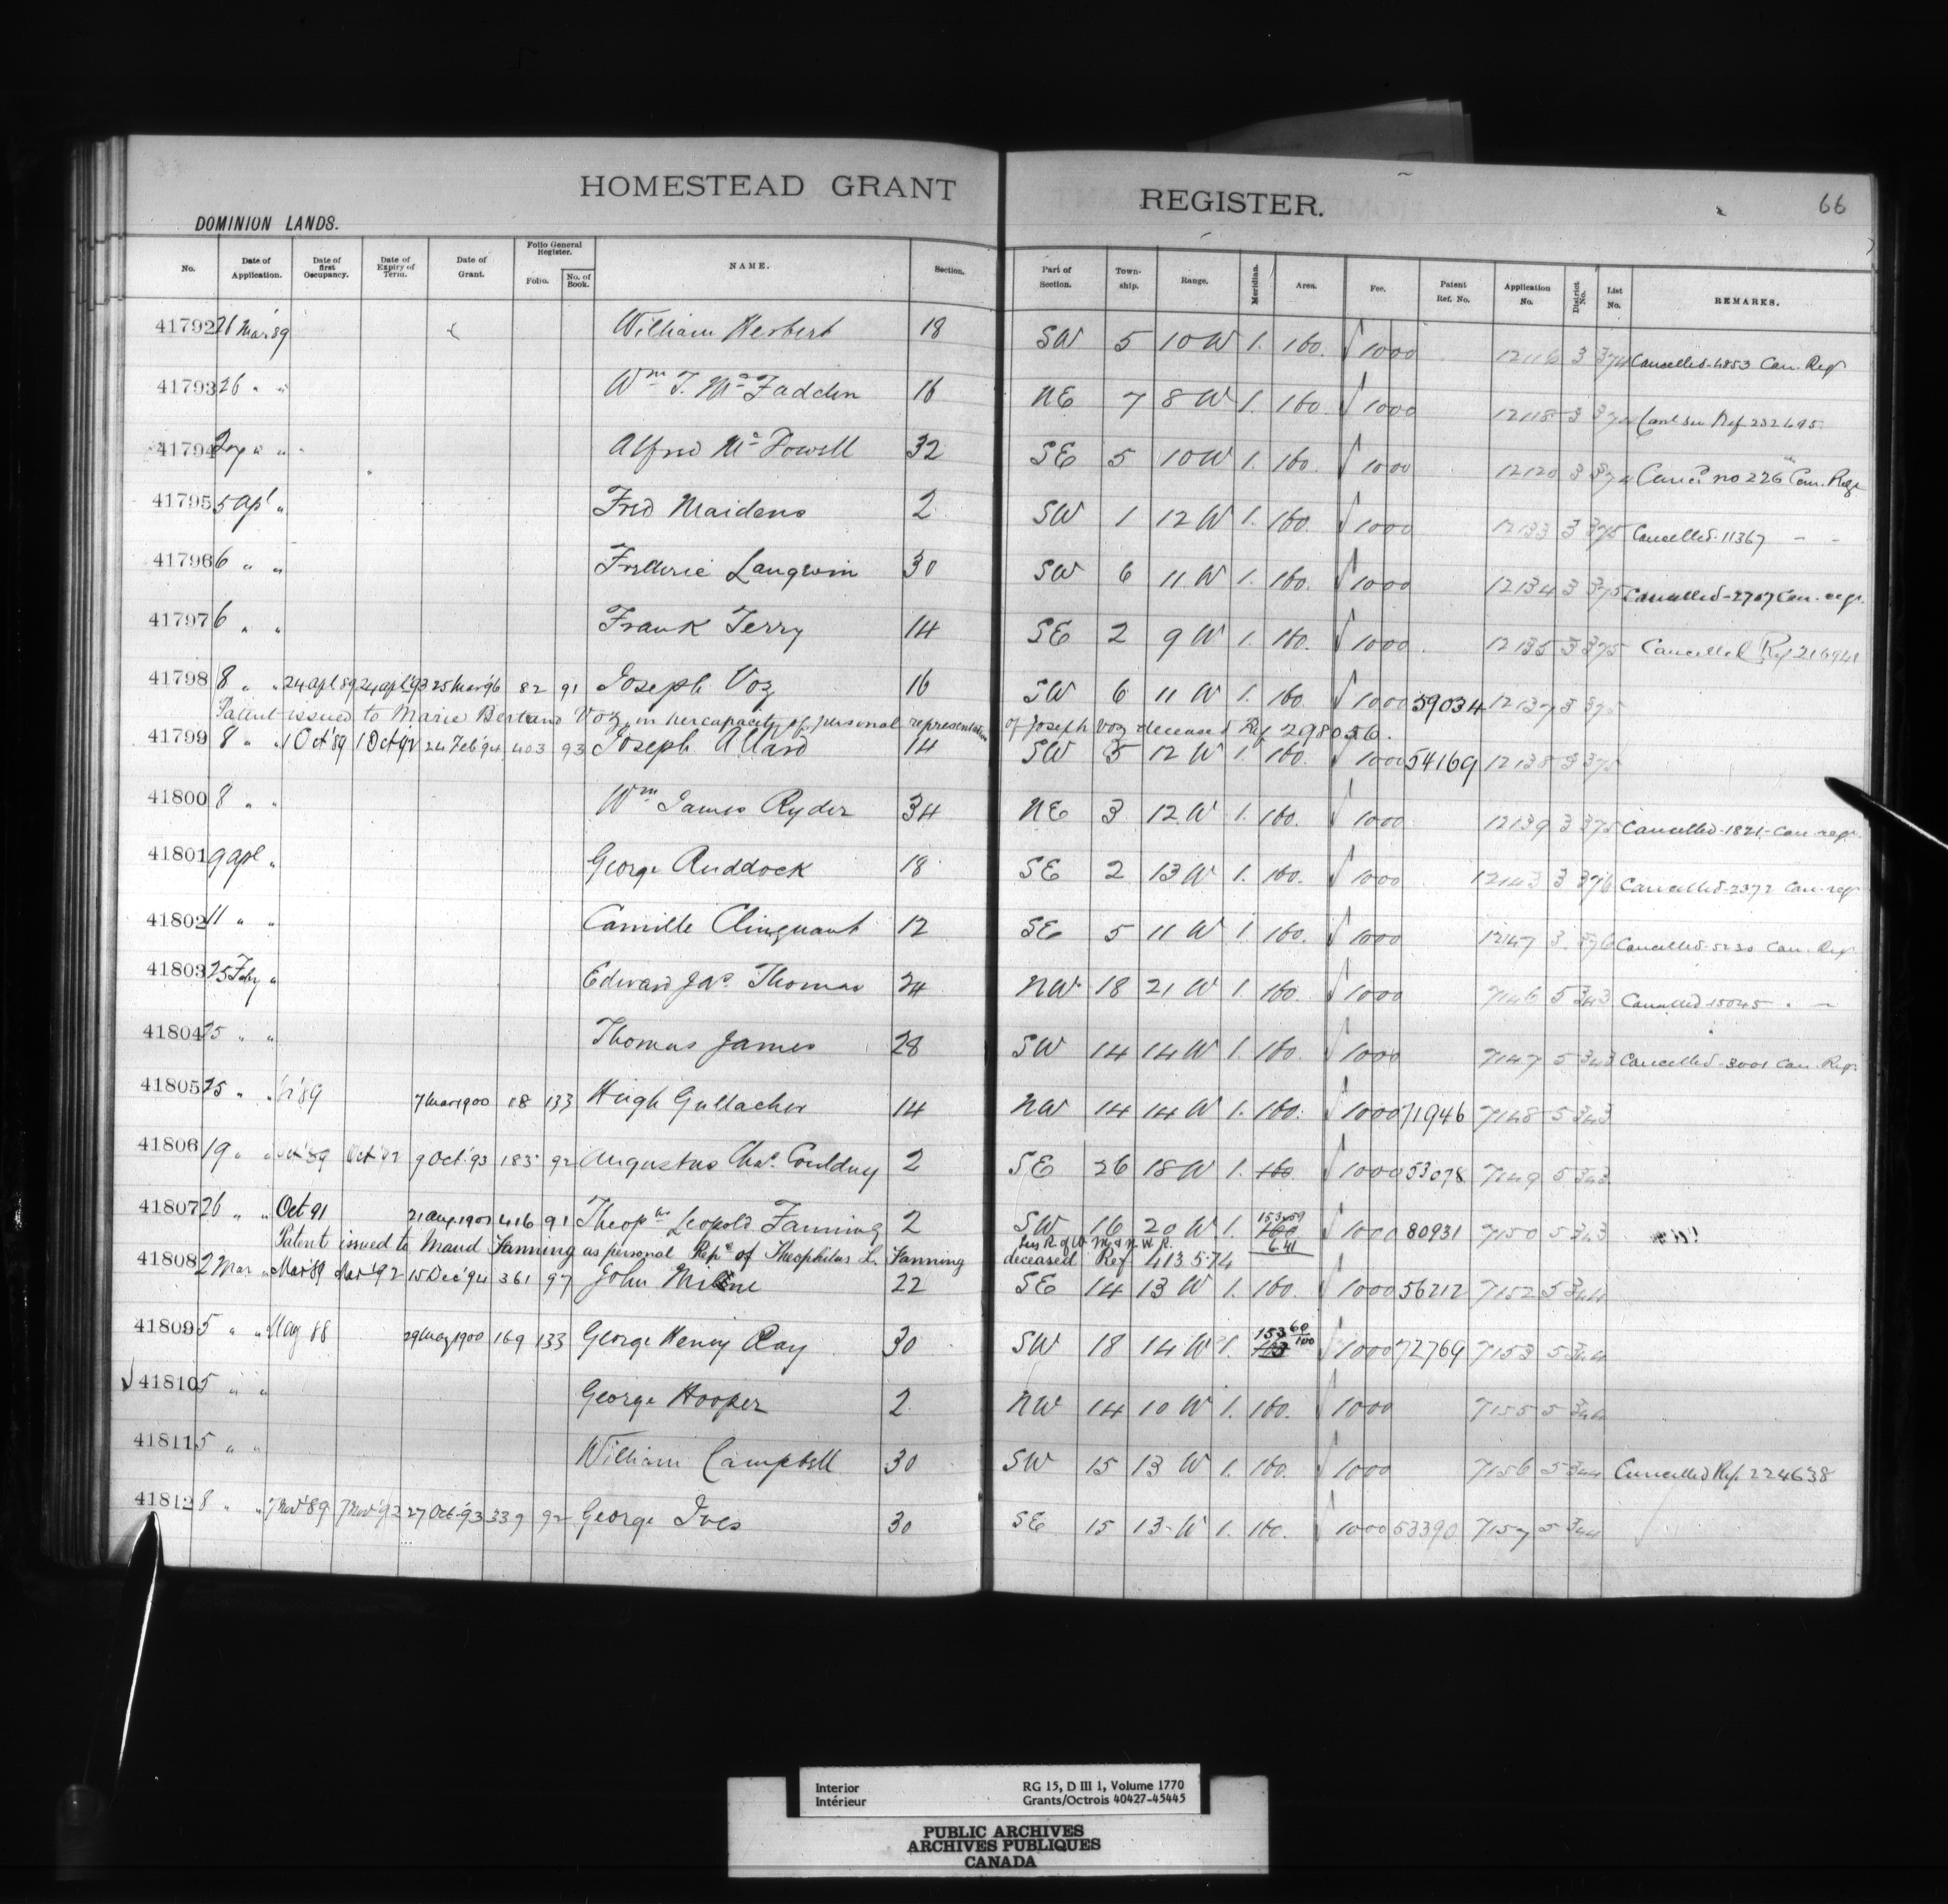 HOMESTEAD GRANT REGISTER. 66
DOMINION LANDS.
No. Date of Application. Date of first Occupancy. Date of Expiry of Term. Date of Grant. Folio General Register. Folio. No. of Book. NAME. Section. Part of Section. Township. Range. Meridian. Area. Fee. Patent Ref. No. Application No. District No. List No. REMARKS.
41792 26 Mar 89 William Herbert 18 SW 5 10 W 1. 160. √ 1000 12116 3 374 Cancelled-4853 Can. Reg
41793 26 " " Wm T. McFadden 16 NE 7 8 W 1. 160 √ 1000 12118 3 374 Canl see Ref 232695
41794 27 " " Alfred McDowell 32 SE 5 10 W 1. 160. √ 1000 12120 3 374 Canc. no 226 Can. Reg
41795 5 Apl " Fred Maidens 2 SW 1 12 W 1. 160. √ 1000 12133 3 375 Cancelled-11367 - -
41796 6 " " Frederic Langevin 30 SW 6 11 W 1. 160. √ 1000 12134 3 375 Cancelled-2707 Can. regr.
41797 6 " " Frank Terry 14 SE 2 9 W 1. 160. √ 1000 12135 3 375 Cancelled Ref 216941
41798 8 " " 24 apl 89 24 apl '93 25 Mar 96 82 91 Joseph Voz 16 SW 6 11 W 1. 160. √ 1000 59034 12137 3 375
Patent issued to Marie Bertrand Voz, in her capacity of personal representative of Joseph Voz deceased Ref 298056.
41799 8 " " 1 Oct '89 1 Oct 92 24 Feb '94 403 93 Joseph Allard 14 SW 5 12 W 1. 160. √ 1000 54169 12138 3 375
41800 8 " " Wm James Ryder 34 NE 3 12 W 1. 160. √ 1000 12139 3 375 Cancelled-1821-Can regr.
41801 9 apl " George Ruddock 18 SE 2 13 W 1. 160. √ 1000 12143 3 376 Cancelled-2372 Can-reg
41802 11 " " Camille Clinquant 12 SE 5 11 W 1. 160. √ 1000 12147 3 376 Cancelled-5230 Can. Reg
41803 25 Feby " Edward Jas. Thomas 24 NW 18 21 W 1. 160. √ 1000 7146 5 343 Cancelled 15045 " -
41804 25 " " Thomas James 28 SW 14 14 W 1. 160. √ 1000 7147 5 343 Cancelled-3001 Can. Reg.
41805 25 " " '89 7 Mar 1900 18 133 Hugh Gallacher 14 NW 14 14 W 1. 160. √ 1000 71946 7148 5 343
41806 19 " " Oct '89 Oct '92 9 Oct. '93 185 92 Augustus Chas. Couldny 2 SE 26 18 W 1. 160 √ 1000 53078 7149 5 343
41807 26 " " Oct 91 21 Aug 1901 416 91 Theops Leopold Fanning 2 SW 16 20 W 1. 153.59 160 √ 1000 80931 7150 5 343
less R. of W. M & N.W.R. 6.41
Patent issued to Maud Fanning as personal Repe of Theophilus L. Fanning deceased Ref 413574
41808 2 Mar " Mar '89 Mar '92 15 Dec '94 361 97 John Milne 22 SE 14 13 W 1. 160. √ 1000 56212 7152 5 344
41809 5 " " May 88 29 May 1900 169 133 George Henry Ray 30 SW 18 14 W 1. 153 60/100 √ 1000 72769 7153 5 344
√ 41810 5 " " George Hooper 2 NW 14 10 W 1. 160. √ 1000 7155 5 344
41811 5 " " William Campbell 30 SW 15 13 W 1. 160. √ 1000 7156 5 344 Cancelled Ref. 224638
41812 8 " " 7 Nov '89 7 Nov '92 27 Oct. '93 339 92 George Ives 30 SE 15 13 W 1. 160. √ 1000 53390 7157 5 344
Interior RG 15, D III 1, Volume 1770
Intérieur Grants/Octrois 40427-45445
PUBLIC ARCHIVES
ARCHIVES PUBLIQUES
CANADA